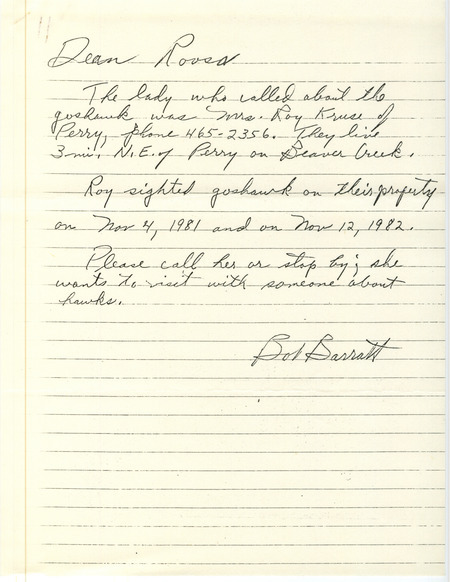 11
Dean Roosa
The lady who called about the
goshawk was Mrs. Roy Kruse of
Perry, phone 465-2356. They live
3 mi. N.E. of Perry on Beaver Creek.
Roy sighted goshawk on their property
on Nov 4, 1981 and on Nov 12, 1982.
Please call her or stop by; she
wants to visit with someone about
hawks.
Bob Barratt